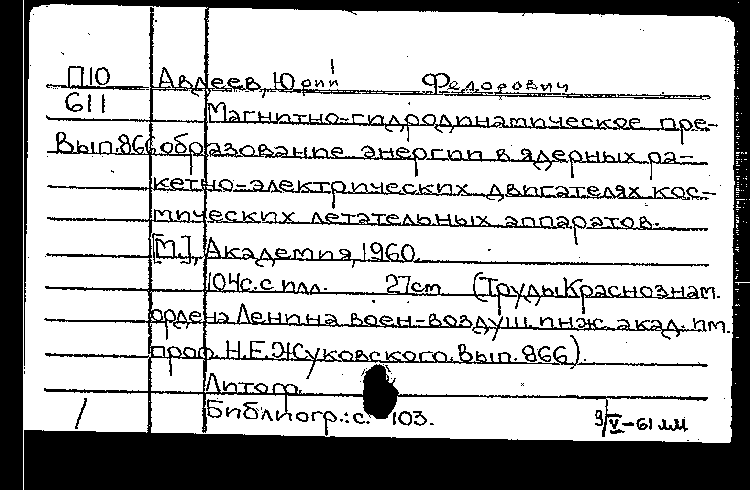 П10 Авдеев, Юрий Федорович
611 Магнитно-гидродинамическое пре-
Вып.866 образование энергии в ядерных ра-
кетно-электрических двигателях кос-
мических летательных аппаратов.
[М.], Академия, 1960.
104с. с илл. 27см (Труды Краснознам.
ордена Ленина воен-воздуш. инж. акад. им.
проф. Н.Е. Жуковского. Вып. 866).
Литогр.
Библиогр.: с. 103.
/ 9/V-61 мм